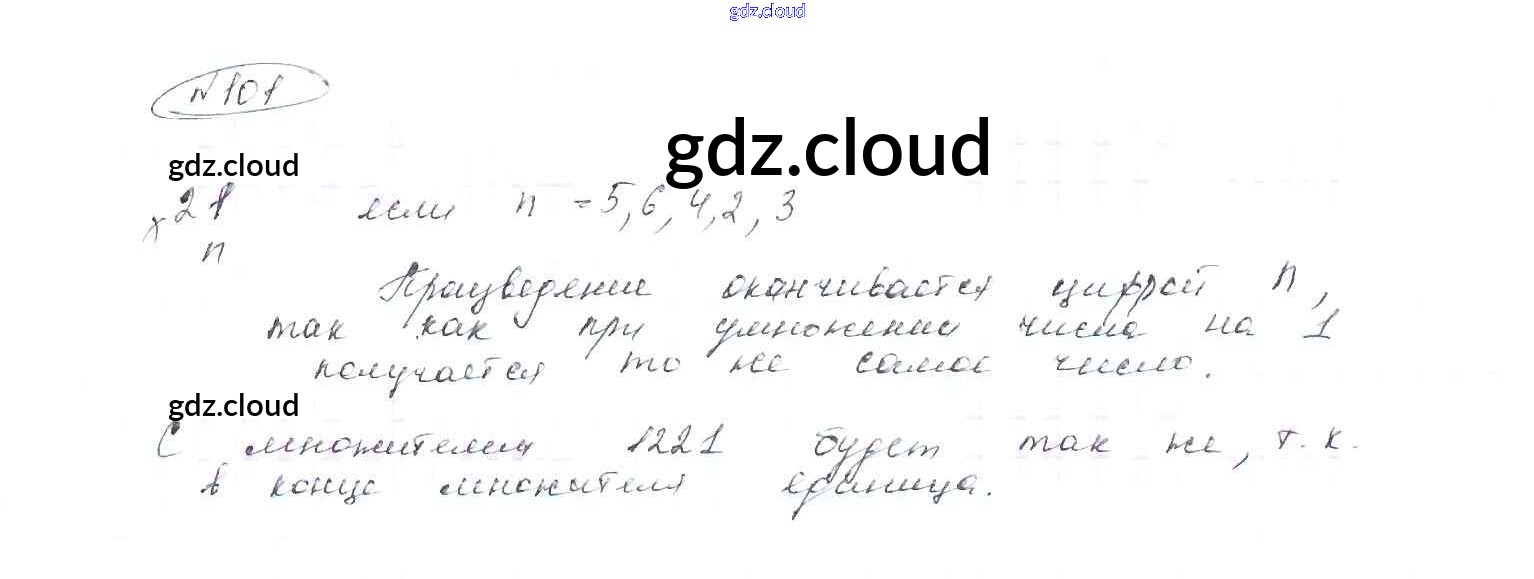 gdz.cloud
№101
gdz.cloud
gdz.cloud
× 21 если n = 5, 6, 4, 2, 3
n
Працведение оканчивается цифрой n,
так как при умножении числа на 1
получается то же самое число.
gdz.cloud
С множителем 1221 будет так же, т.к.
в конце множителя единица.